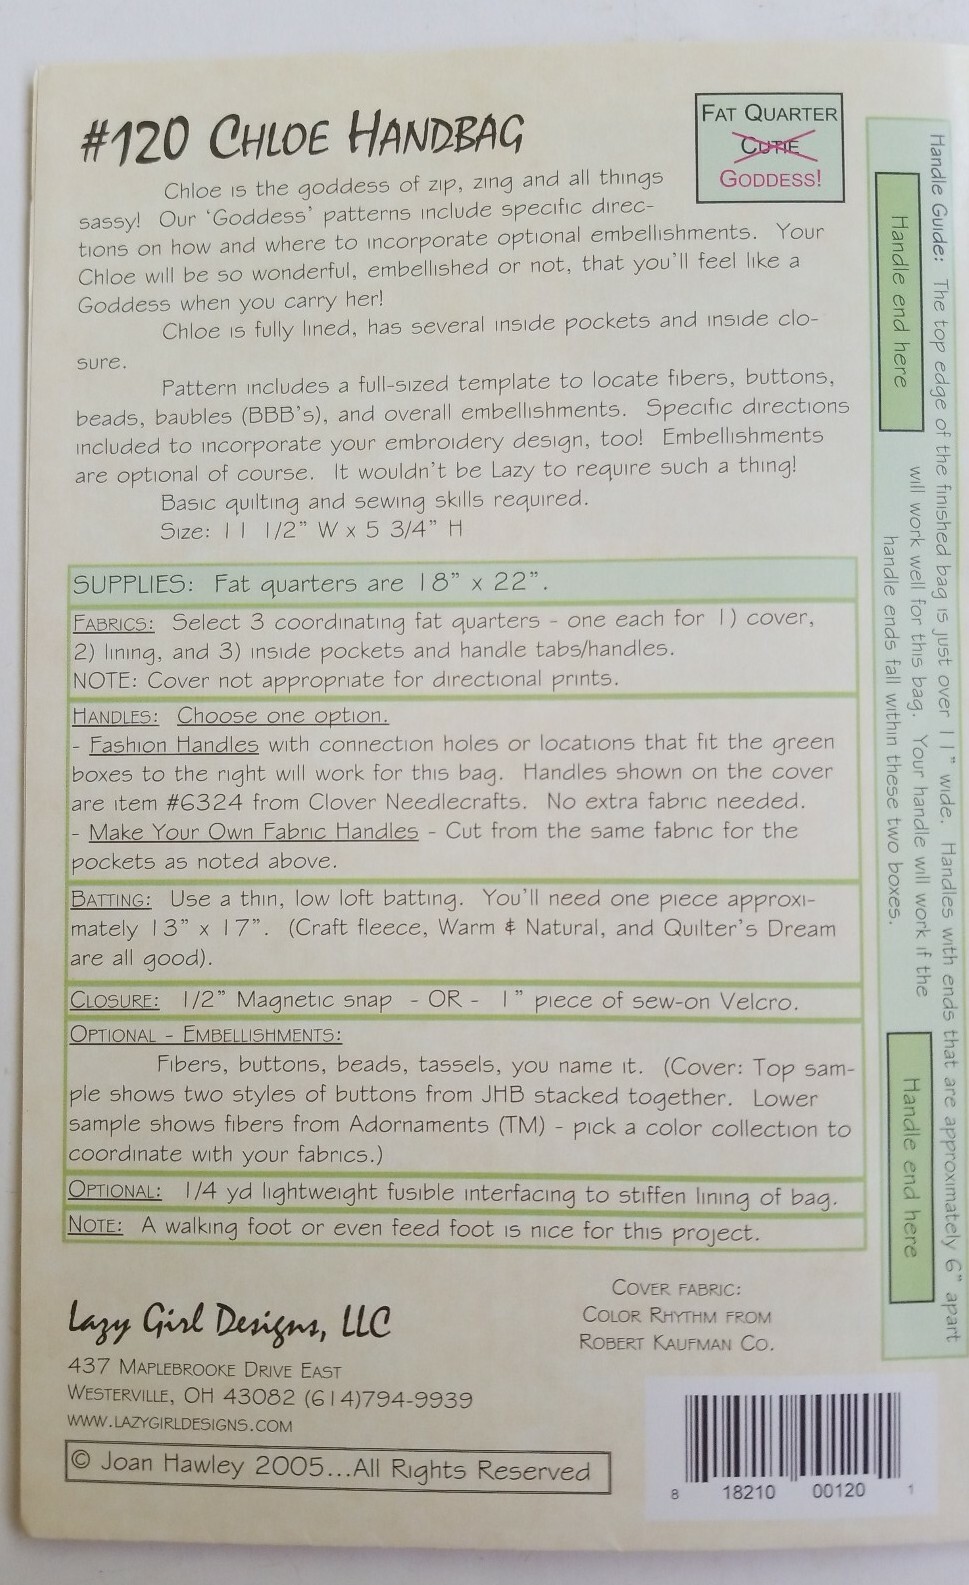 #120 CHLOE HANDBAG
FAT QUARTER
CUTIE
GODDESS!
Chloe is the goddess of zip, zing and all things
sassy!  Our 'Goddess' patterns include specific direc-
tions on how and where to incorporate optional embellishments.  Your
Chloe will be so wonderful, embellished or not, that you'll feel like a
Goddess when you carry her!
Chloe is fully lined, has several inside pockets and inside clo-
sure.
Pattern includes a full-sized template to locate fibers, buttons,
beads, baubles (BBB's), and overall embellishments.  Specific directions
included to incorporate your embroidery design, too!  Embellishments
are optional of course.  It wouldn't be Lazy to require such a thing!
Basic quilting and sewing skills required.
Size: 11 1/2" W x 5 3/4" H
SUPPLIES:  Fat quarters are 18" x 22".
FABRICS:  Select 3 coordinating fat quarters - one each for 1) cover,
2) lining, and 3) inside pockets and handle tabs/handles.
NOTE: Cover not appropriate for directional prints.
HANDLES:  Choose one option.
- Fashion Handles with connection holes or locations that fit the green
boxes to the right will work for this bag.  Handles shown on the cover
are item #6324 from Clover Needlecrafts.  No extra fabric needed.
- Make Your Own Fabric Handles - Cut from the same fabric for the
pockets as noted above.
BATTING:  Use a thin, low loft batting.  You'll need one piece approxi-
mately 13" x 17".  (Craft fleece, Warm & Natural, and Quilter's Dream
are all good).
CLOSURE:  1/2" Magnetic snap  - OR -  1" piece of sew-on Velcro.
OPTIONAL - EMBELLISHMENTS:
Fibers, buttons, beads, tassels, you name it.  (Cover: Top sam-
ple shows two styles of buttons from JHB stacked together.  Lower
sample shows fibers from Adornaments (TM) - pick a color collection to
coordinate with your fabrics.)
OPTIONAL:  1/4 yd lightweight fusible interfacing to stiffen lining of bag.
NOTE:  A walking foot or even feed foot is nice for this project.
Handle Guide:  The top edge of the finished bag is just over 11" wide.  Handles with ends that are approximately 6" apart
will work well for this bag.  Your handle will work if the
handle ends fall within these two boxes.
Handle end here
Handle end here
Lazy Girl Designs, LLC
437 MAPLEBROOKE DRIVE EAST
WESTERVILLE, OH 43082 (614)794-9939
WWW.LAZYGIRLDESIGNS.COM
© Joan Hawley 2005...All Rights Reserved
COVER FABRIC:
COLOR RHYTHM FROM
ROBERT KAUFMAN CO.
8 18210 00120 1